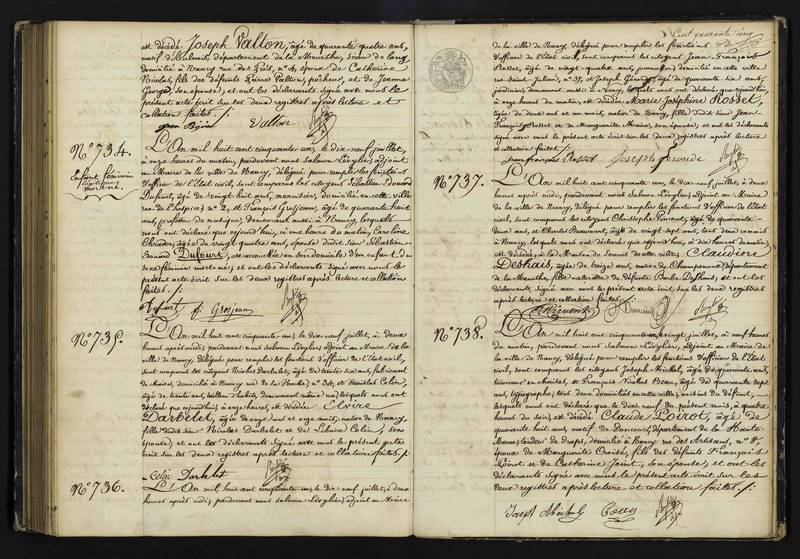 est décédé Joseph Valton, âgé de quarante quatre ans,
natif d'Hulnoit, département de la Meurthe, scieur de long,
domicilié à Nancy rue des Quês, n° 4, époux de Catherine
Nicolas, fils des défunts Valton, pêcheur, et de Jeanne
George, son épouse, et ont les déclarants signé avec nous le
présent acte écrit sur les deux registres après lecture et
collation faites. /.
Valton
N° 734.
Enfant féminin
mort-né.
L'An mil huit cent cinquante-un, le dix-neuf juillet,
à onze heures du matin, pardevant nous Salmon Lévylier, adjoint
au Maire de la ville de Nancy, délégué pour remplir les fonctions
d'officier de l'état civil, sont comparus les citoyens Sébastien Edouard
Dufourt, âgé de vingt huit ans, menuisier, domicilié en cette ville
rue de l'hospice n° 2, et François Grosjean, âgé de quarante huit
ans, professeur de musique, demeurant aussi à Nancy, lesquels
nous ont déclaré que cejourd'hui, à une heure du matin, Caroline
âgée de vingt quatre ans, épouse dudit sieur Sébastien
Edouard Dufourt, est accouchée en son domicile d'un enfant du
sexe féminin mort-né; et ont les déclarants signé avec nous le
présent acte écrit sur les deux registres après lecture et collation
faites. /.
Dufourt f. Grosjean
N° 735.
L'An mil huit cent cinquante-un, le dix neuf juillet, à deux
heures après midi, pardevant nous Salmon Lévylier, adjoint au Maire de la
ville de Nancy, délégué pour remplir les fonctions d'officier de l'état civil,
sont comparus les citoyens Nicolas Darbelet, âgé de trente six ans, fabricant
de chaises, domicilié à Nancy rue de la n° 34, et Stanislas Colin,
âgé de trente ans, demeurant même rue; lesquels nous ont
déclaré que cejourd'hui, à onze heures, est décédée Elvire
Darbelet, âgée de onze mois, native de Nancy,
fille dudit sieur Nicolas Darbelet et de Colin, son
épouse; et ont les déclarants signé avec nous le présent acte
écrit sur les deux registres après lecture et collation faites. /.
Colin Darbelet
N° 736.
L'An mil huit cent cinquante-un, le dix neuf juillet, à deux
heures après midi, pardevant nous Salmon Lévylier, adjoint au Maire
cent quarante cinq
de la ville de Nancy, délégué pour remplir les fonctions
d'officier de l'état civil, sont comparus les citoyens Jean François
Rosset, âgé de vingt-quatre ans, domicilié en cette ville
rue Saint Julien, n° 37, et Joseph âgé de quarante six ans,
jardinier, demeurant aussi à Nancy, lesquels nous ont déclaré que cejourd'hui,
à onze heures du matin, est décédée Marie Joséphine Rosset,
âgée de deux ans et un mois, native de Nancy, fille dudit sieur Jean-
François Rosset et de Marguerite son épouse; et ont les déclarants
signé avec nous le présent acte écrit sur les deux registres après lecture
et collation faites. /.
Jean françois Rosset Joseph
N° 737.
L'An mil huit cent cinquante-un, le dix neuf juillet, à deux
heures après midi, pardevant nous Salmon Lévylier, adjoint au Maire
de la ville de Nancy, délégué pour remplir les fonctions d'officier de l'état
civil, sont comparus les citoyens Christophe âgé de quarante-
deux ans, et Charles âgé de vingt sept ans, tous deux commis
à Nancy, lesquels nous ont déclaré que cejourd'hui, à dix heures du matin,
est décédée, à la Maison de Secours de cette ville, Claudine
Deshais, âgée de treize ans, native de Champenoux, département
de la Meurthe, fille naturelle de défunte Deshais; et ont les
déclarants signé avec nous le présent acte écrit sur les deux registres
après lecture et collation faites. /.
N° 738.
L'An mil huit cent cinquante-un, le vingt juillet, à neuf heures
du matin, pardevant nous Salmon Lévylier, adjoint au Maire de
la ville de Nancy, délégué pour remplir les fonctions d'officier de l'état
civil, sont comparus les citoyens Joseph Michel, âgé de quarante ans,
tourneur en chaises, et François Nicolas Beau, âgé de quarante sept
ans, typographe; tous deux domiciliés en cette ville; voisins du défunt,
lesquels nous ont déclaré que le dix neuf du présent mois, à quatre
heures du soir, est décédé Claude Poirot, âgé de
quarante huit ans, natif de département de la Haute-
Marne, tondeur de draps, domicilié à Nancy rue des Artisans, n° 8,
époux de Marguerite Croisé, fils des défunts François
Poirot et de Catherine son épouse; et ont les
déclarants signé avec nous le présent acte écrit sur les
deux registres après lecture et collation faites. /.
Joseph